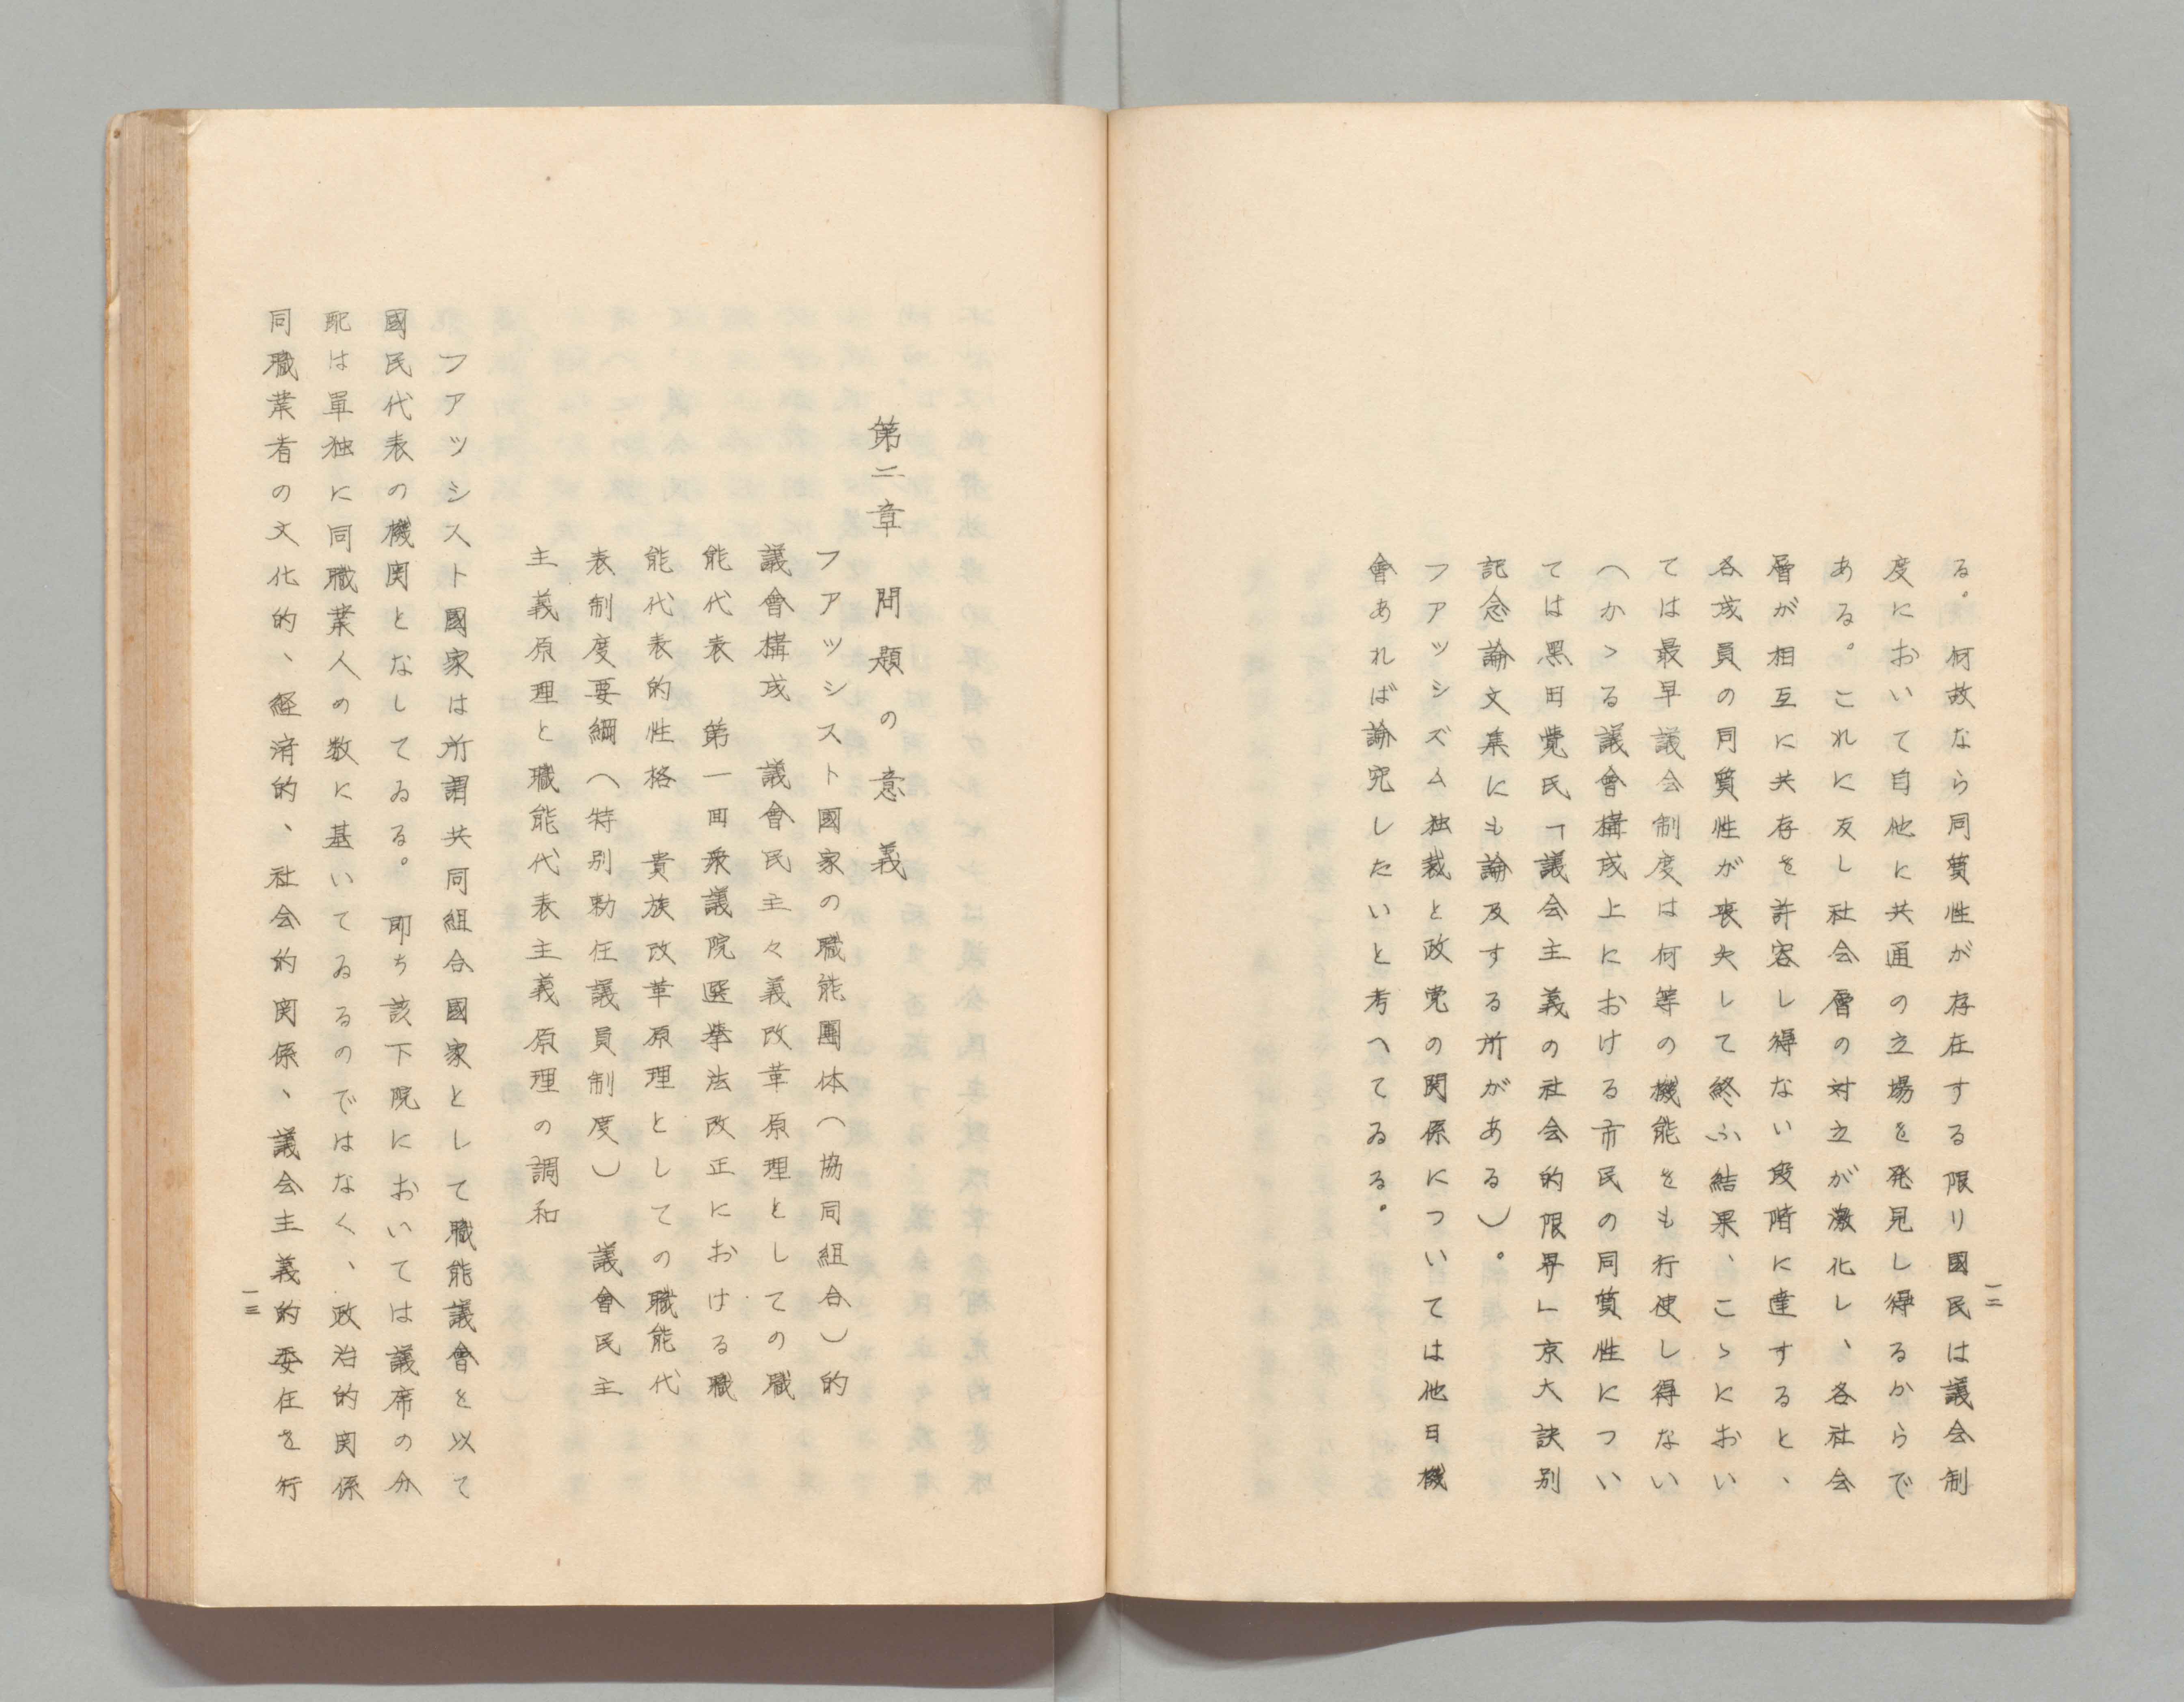 る。何故なら同質性が存在する限り國民は議会制
度において自他に共通の立場を発見し得るからで
ある。これに反し社会層の対立が激化し、各社会
層が相互に共存を許容し得ない段階に達すると、
各成員の同質性が喪失して終ふ結果、こゝにおい
ては最早議会制度は何等の機能をも行使し得ない
(かゝる議會構成上における市民の同質性につい
ては黒田覺民「議会主義の社会的限界」京大訣別
記念論文集にも論及する所がある)。
フアツシズム独裁と政党の関係については他日機
會あれば論究したいと考へてゐる。
一二
第二章 問題の意義
フアツシスト國家の職能團体(協同組合)的
議會構成 議會民主々義改革原理としての職
能代表 第一回衆議院選挙法改正における職
能代表的性格 貴族改革原理としての職能代
表制度要綱(特別勅任議員制度) 議會民主
主義原理と職能代表主義原理の調和
フアツシスト國家は所謂共同組合國家として職能議會を以て
國民代表の機関となしてゐる。即ち該下院においては議席の分
配は單独に同職業人の数に基いてゐるのではなく、政治的関係
同職業者の文化的、経済的、社会的関係、議会主義的委任を行
一三